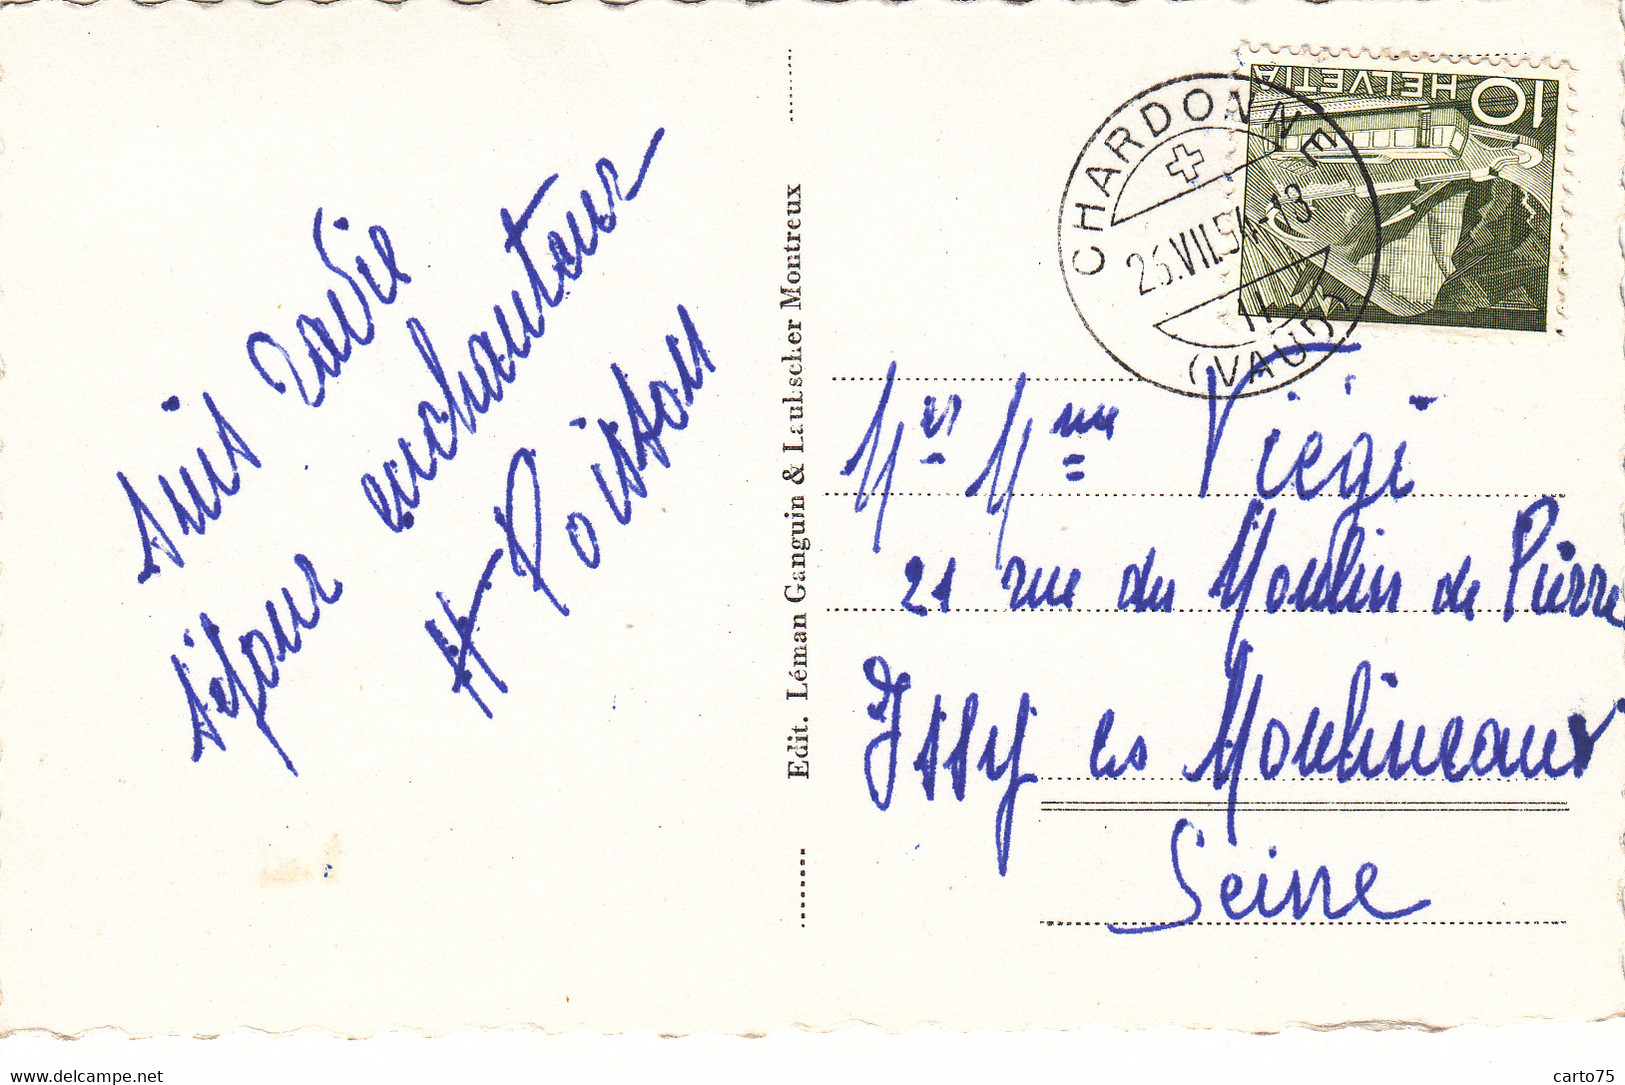 suis ravie
séjour enchanteur
H Poisson
Edit. Léman Ganguin & Laubscher Montreux
CHARDONNE
26.VII.54-13
(VAUD)
10 HELVETIA
Mr Mme Viégi
21 rue du Moulin de Pierre
Issy les Moulineaux
Seine
delcampe.net
carto75